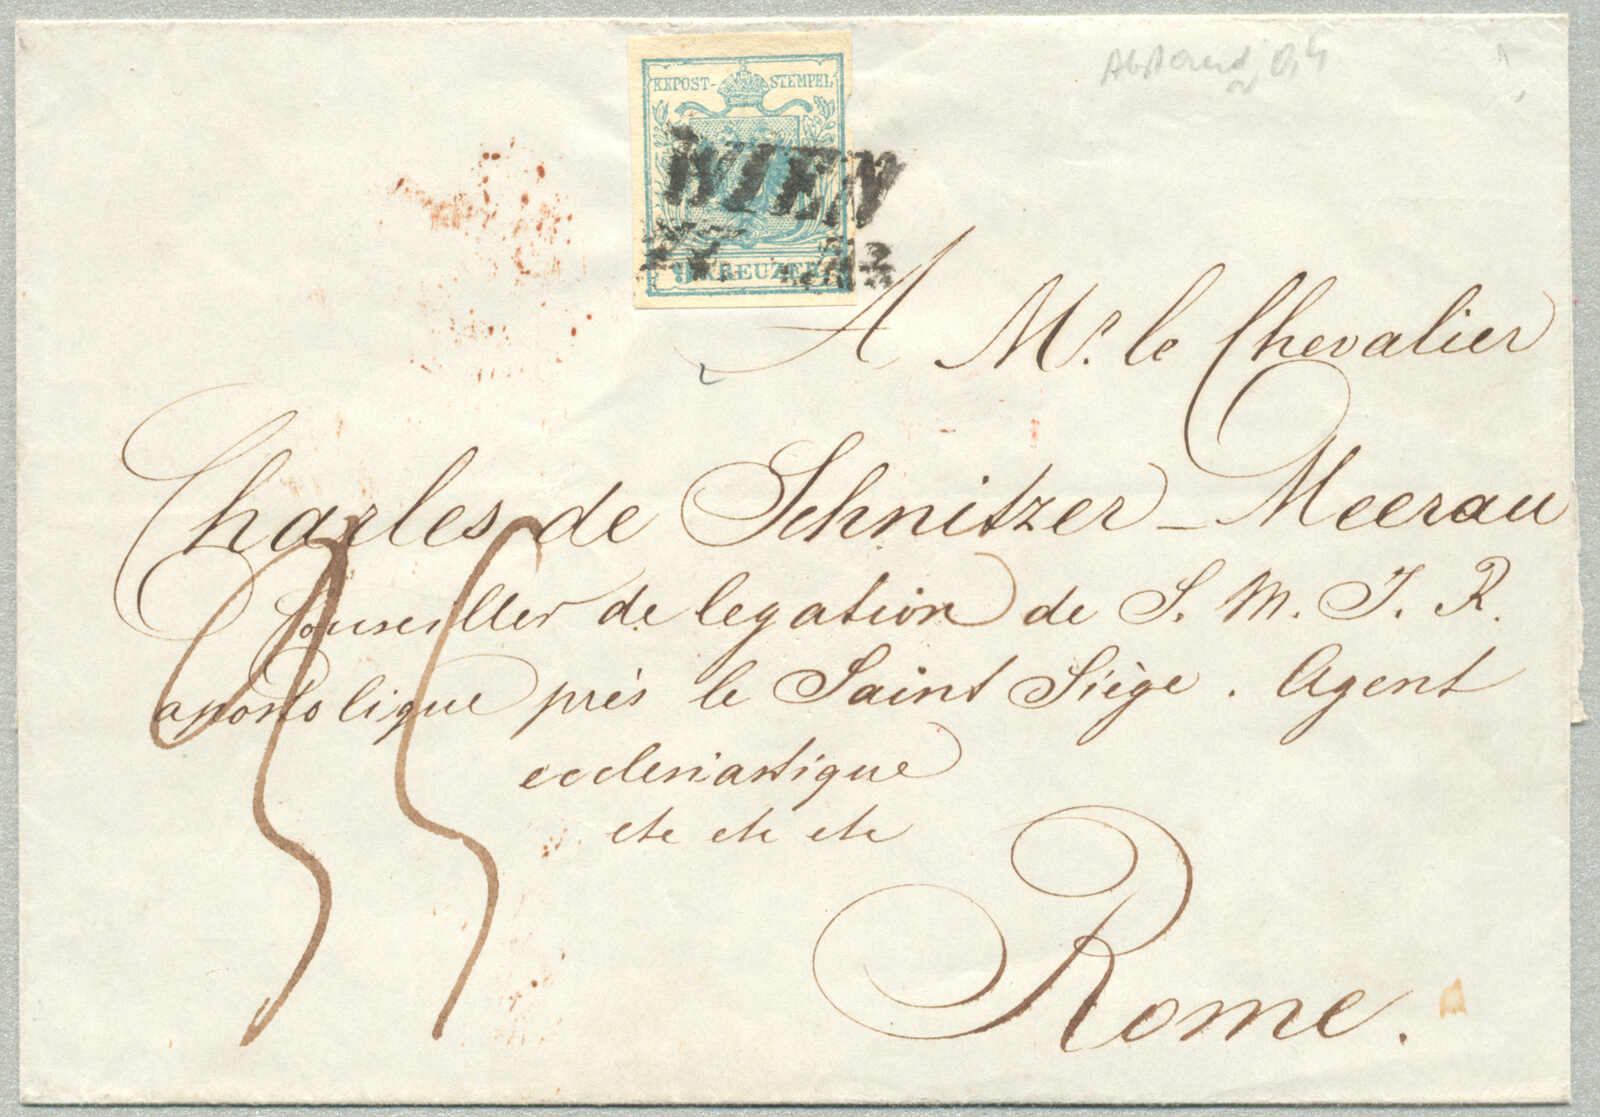 KKPOST-STEMPEL
WIEN
9 KREUZER
A Mr. le Chevalier
Charles de Schnitzer-Meerau
Conseiller de legation de S. M. I. R.
apostolique près le Saint Siège. Agent
ecclesiastique
etc etc etc
Rome.